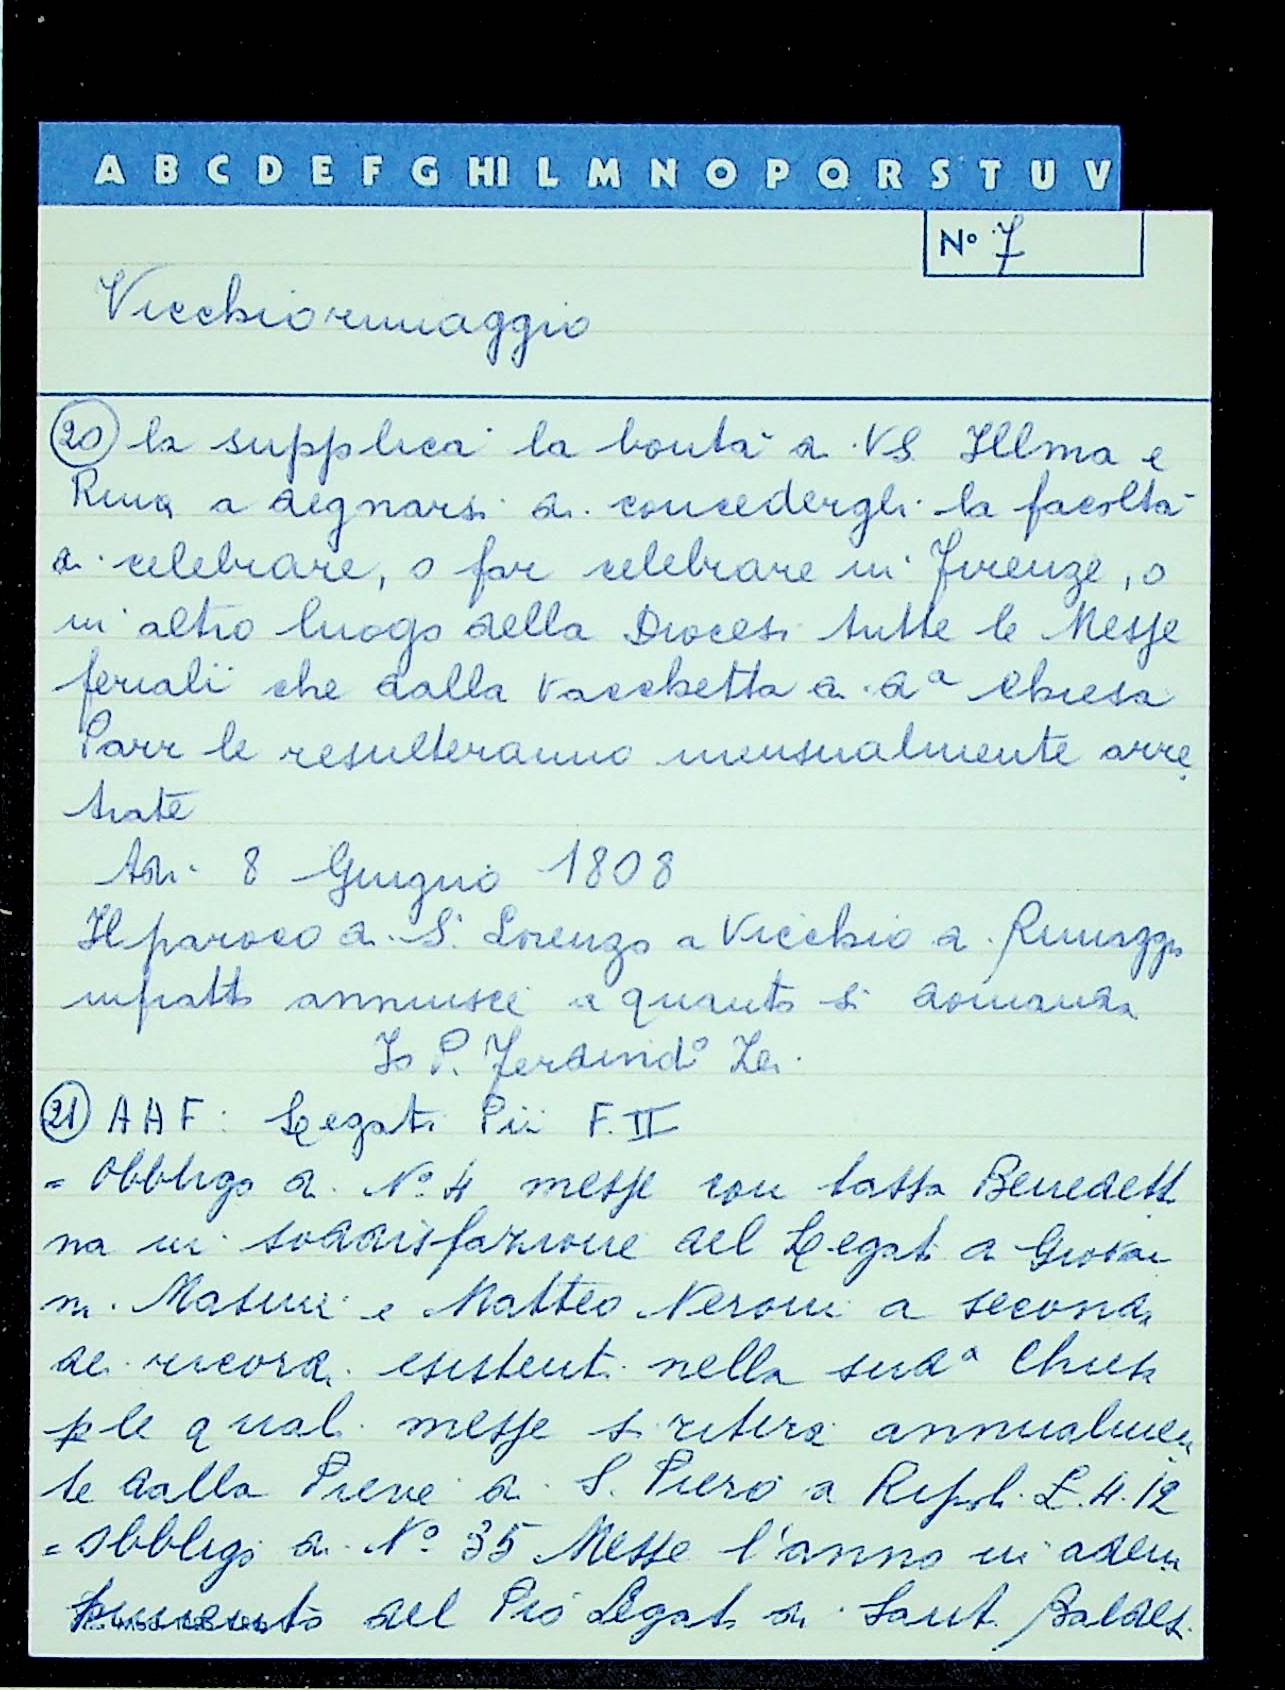 A B C D E F G HI L M N O P Q R S T U V
N° 7
Vicchiorimaggio
20 la supplica la bontà di VS Illma e
Rma a degnarsi di concedergli la facoltà
di celebrare, o far celebrare in Firenze, o
in altro luogo della Diocesi tutte le Messe
feriali che dalla vacchetta di dª Chiesa
Parr le resulteranno mensualmente arre
trate
Adi 8 Giugno 1808
Il paroco di S. Lorenzo a Vicchio a Rimaggio
infratto annuisce a quanto si domanda
Io P. Ferdindº Zei
21 AAF: Legati Pii F. II
= Obbligo di N° 4 messe con tassa Benedetti
na in soddisfazione del Legato di Giovan
ni Masini e Matteo Neroni a seconda
dei ricordi esistenti nella sudª Chiesa
p le quali messe si ritira annualmen
te dalla Pieve di S. Piero a Ripoli L. 4.12
= Obbligo di N° 35 Messe l'anno in adem
pimento del Pio Legato di Santi Baldesi